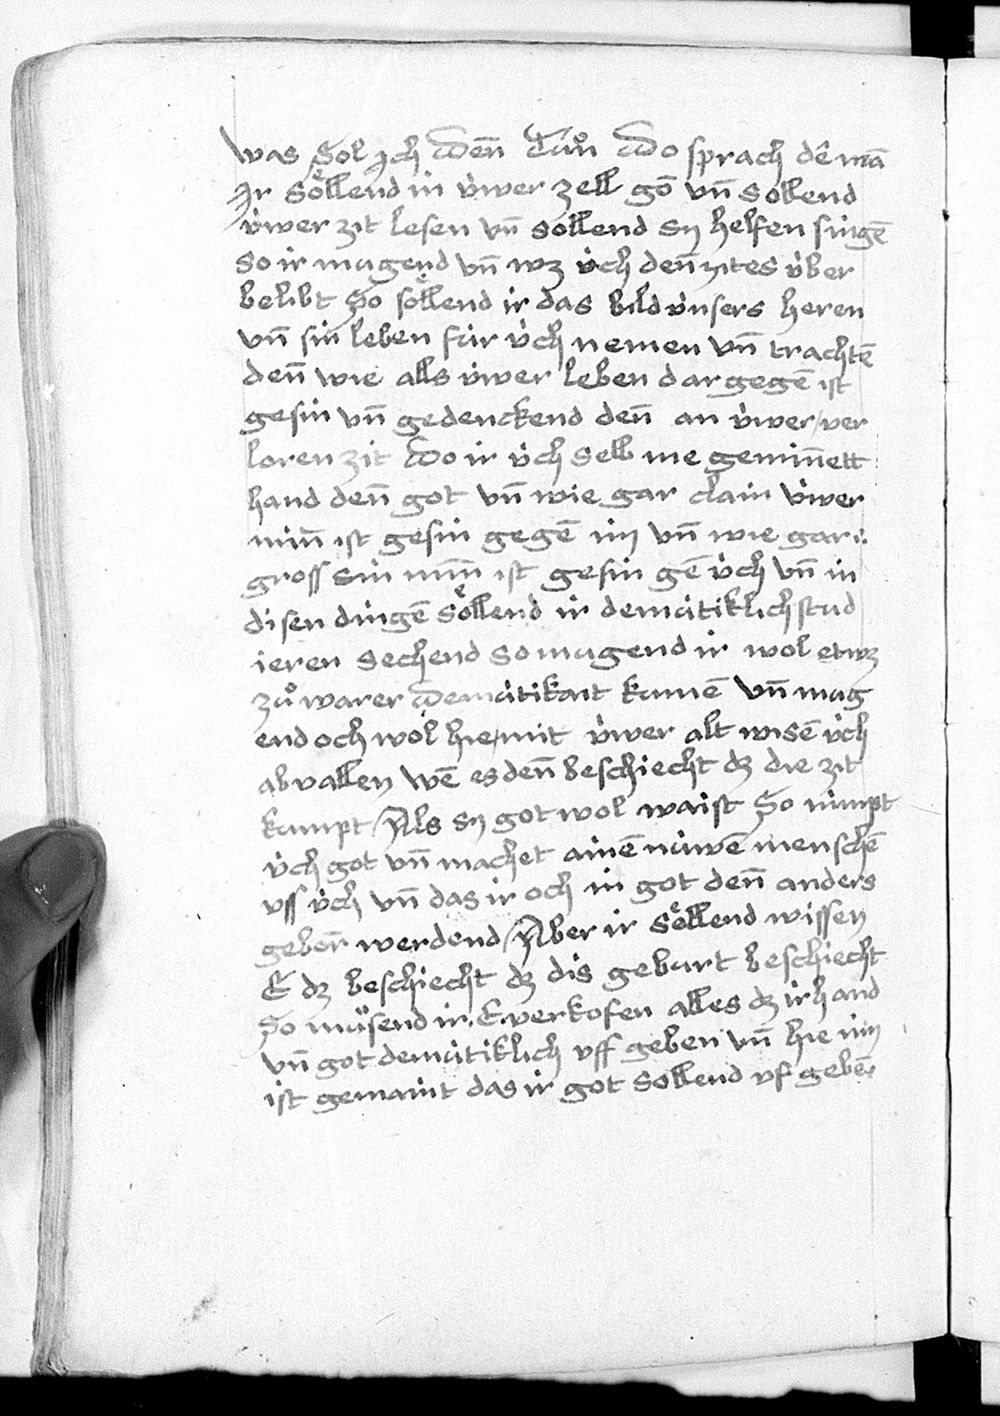 Was Sol Ich Den Tuͦn Do sprach dē mā
Ir soͤllend in v́wer zell gō vn̄ sollend
v́wer zit lesen vn̄ sollend sy helfen singē
So ir mugend vn̄ wz v́ch den̄ zites v́ber
belibt So soͤllend ir das bild v́nsers heren
vn̄ sin leben fúr v́ch nemen vn̄ trachtē
den̄ wie alls v́wer leben dar gegē ist
gesin vn̄ gedenckend den̄ an v́wer ver
loren zit Do ir v́ch selb me gemin̄ett
hand den̄ got vn̄ wie gar clain v́wer
min̄ ist gesin gegē im vn̄ wie gar
gross sin min̄ ist gesin gē v́ch vn̄ in
disen dingē soͤllend ir demútiklich stud
ieren sechend so mugend ir wol etwz
zuͦ warer Demútikait kumē vn̄ mug
end och wol hie mit v́wer alt wisē v́ch
ab vallen wē es den̄ beschiecht dz die zit
kumpt Als sy got wol waist So nimpt
v́ch got vn̄ machet ainē núwē menschē
vss v́ch vn̄ das ir och in got den̄ anders
gebern̄ werdend Aber ir soͤllend wissen
E dz beschiecht dz dis geburt beschiecht
So muͤsend ir E verkofen alles dz ir hand
vn̄ got demútiklich vff geben vn̄ hie inn
ist gemaint das ir got sollend vf gebē